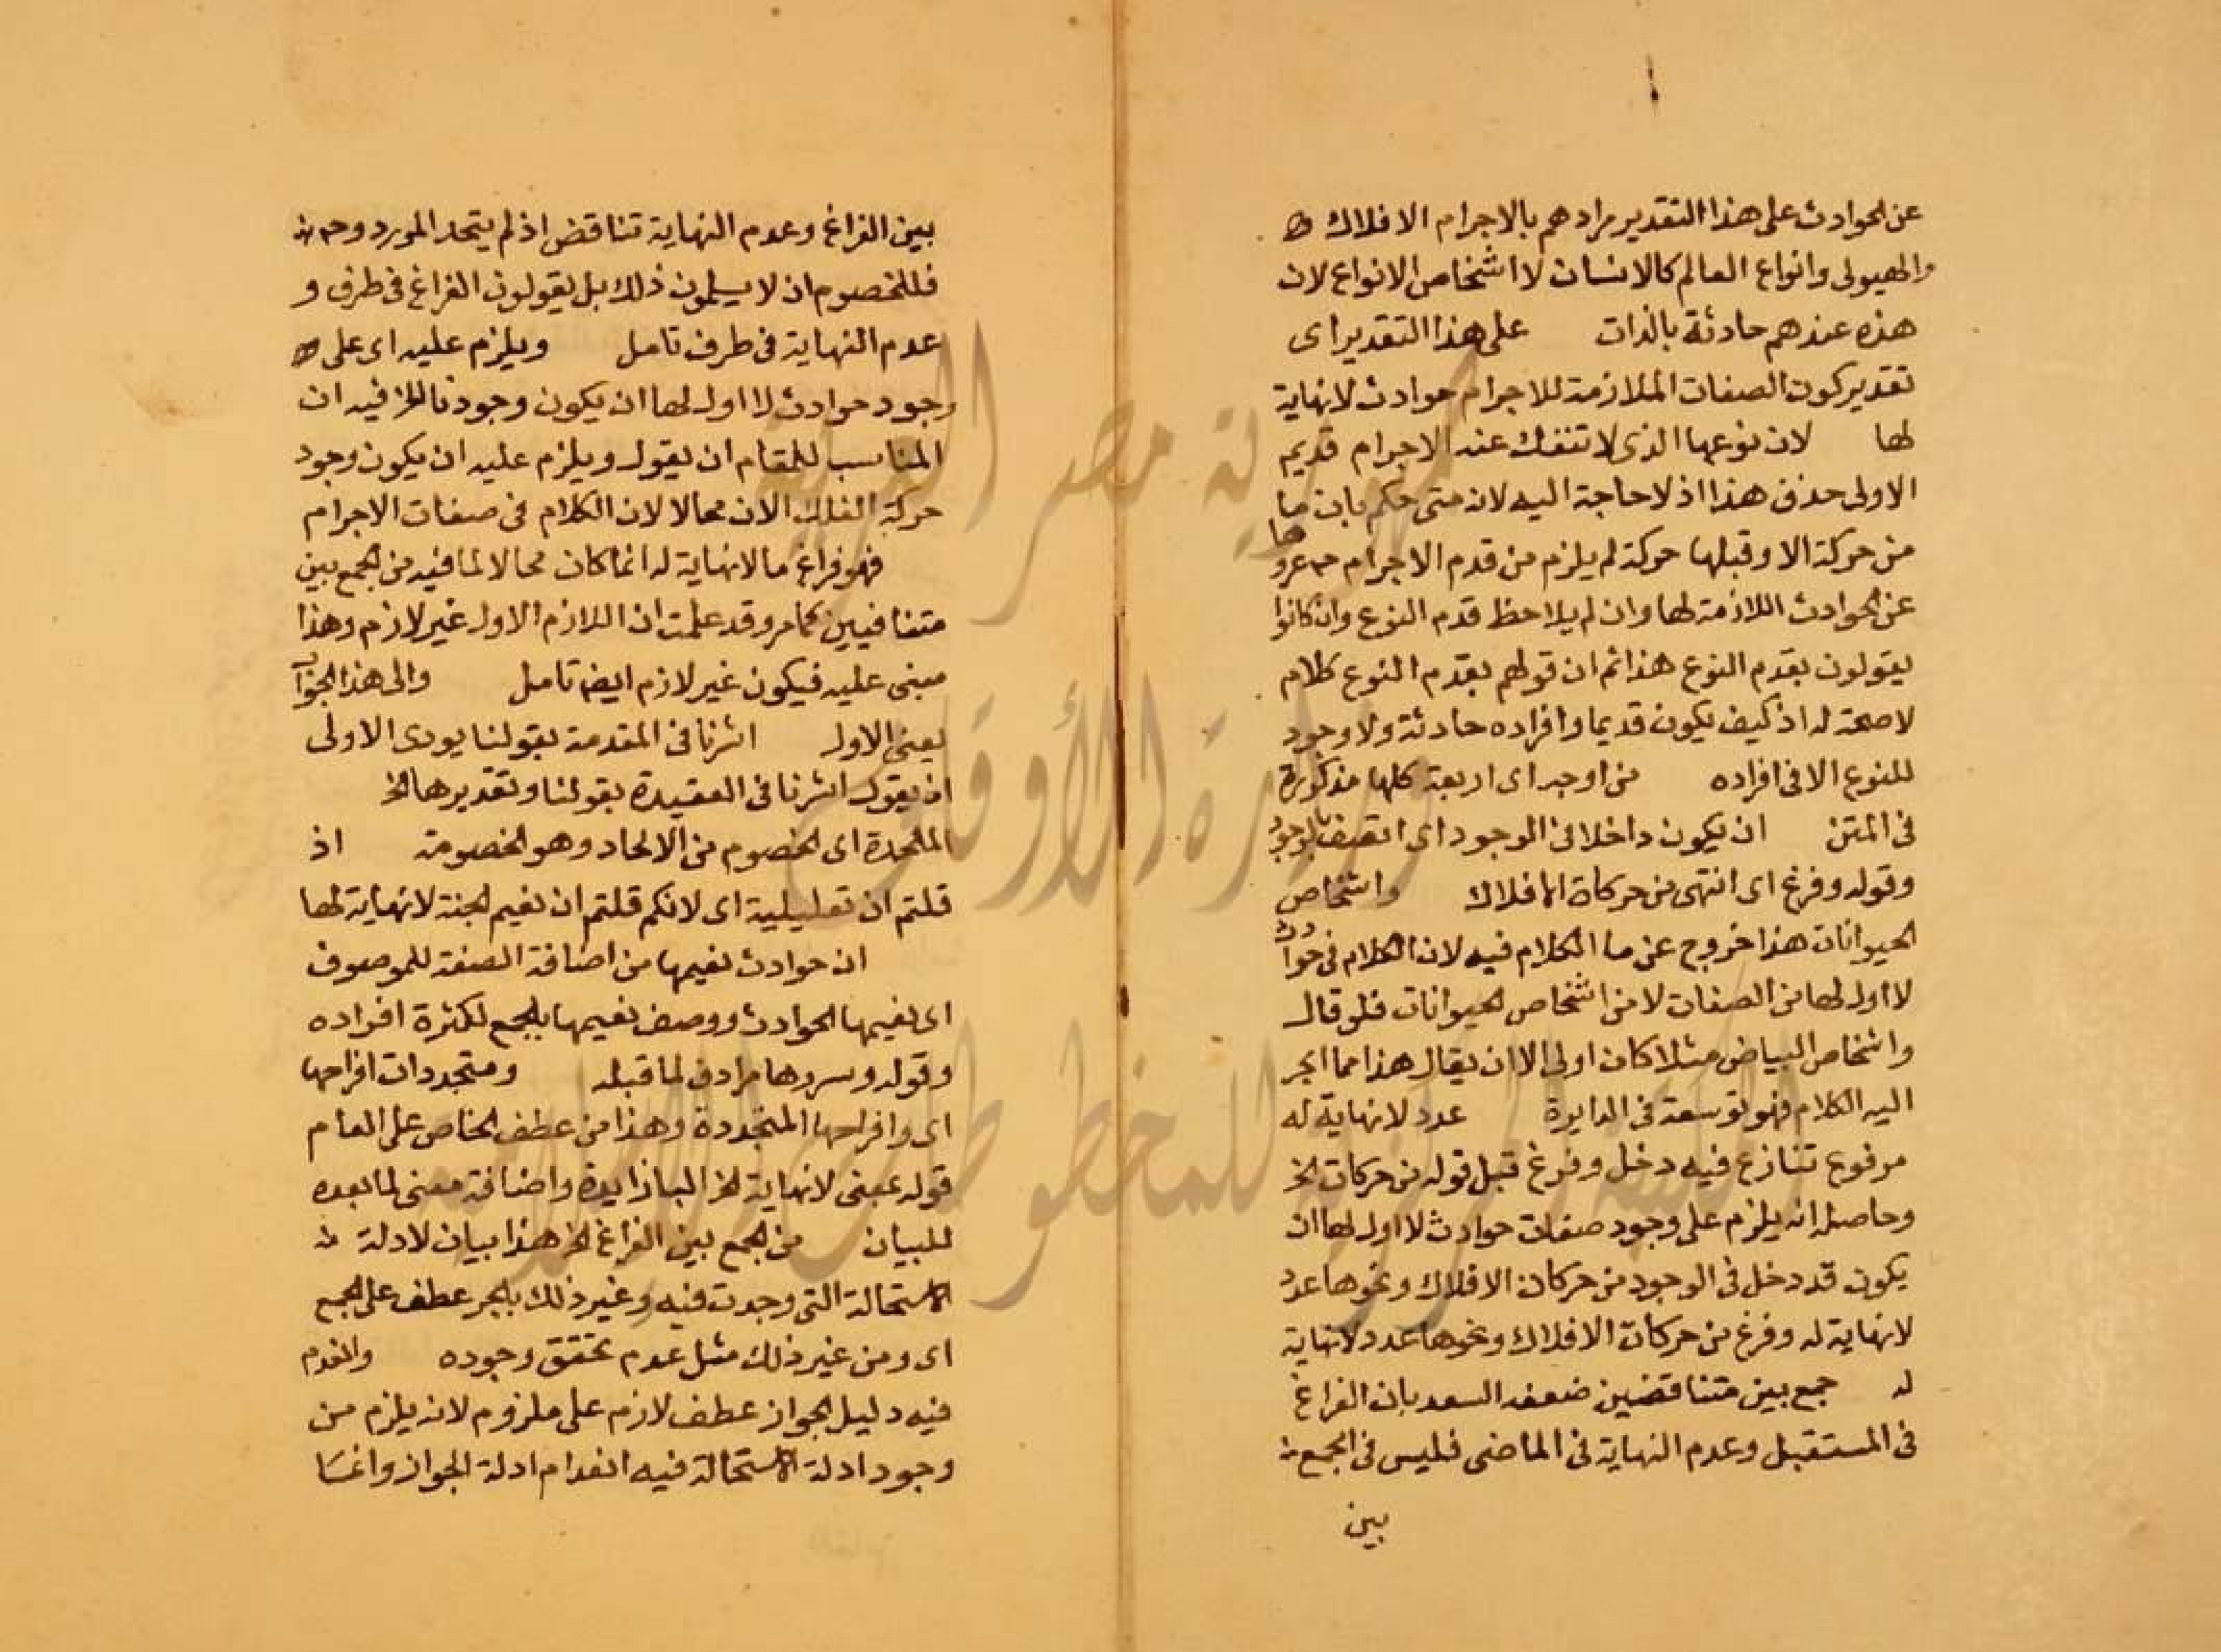 عن الحوادث على هذا التقدير مرادهم بالاجرام الافلاك
والهيولى وانواع العالم كالانسان لا اشخاص الانواع لان
هذه عندهم حادثة بالذات على هذا التقدير اى
تقدير كون الصفات الملازمة للاجرام حوادث لا نهاية
لها لان نوعها الذى لا تنفك عنه الاجرام قديم
الاولى حذف هذا اذ لا حاجة اليه لانه متى حكم بان ما
من حركة الا وقبلها حركة لم يلزم من قدم الاجرام ح عروها
عن الحوادث اللازمة لها وان لم يلاحظ قدم النوع وان كانوا
يقولون بقدم النوع هذا ثم ان قولهم بقدم النوع كلام
لا صحة له اذ كيف يكون قديما وافراده حادثة ولا وجود
للنوع الا فى افراده من اوجه اى اربعة كلها مذكورة
فى المتن ان يكون داخلا فى الوجود اى اتصف بالوجود
وقوله وفرغ اى انتهى من حركاة الافلاك واشخاص
الحيوانات هذا خروج عن ما الكلام فيه لان الكلام فى حوادث
لا اول لها من الصفات لا من اشخاص الحيوانات فلو قال
واشخاص البياض مثلا كان اولى الا ان يقال هذا مما انجر
اليه الكلام فهو توسعة فى الدايرة عدد لا نهاية له
مرفوع تنازع فيه دخل وفرغ قبل قوله من حركات الخ
وحاصله انه يلزم على وجود صفات حوادث لا اول لها ان
يكون قد دخل فى الوجود من حركات الافلاك ونحوها عدد
لا نهاية له وفرغ من حركات الافلاك ونحوها عدد لا نهاية
له جمع بين متناقضين ضعفه السعد بان الفراغ
فى المستقبل وعدم النهاية فى الماضى فليس فى الجمع
بين
بين الفراغ وعدم النهاية تناقض اذ لم يتحد المورد وح
فللخصوم ان لا يسلمون ذلك بل يقولون الفراغ فى طرف و
عدم النهاية فى طرف تامل ويلزم عليه اى على
وجود حوادث لا اول لها ان يكون وجودنا الخ فيه ان
المناسب للمقام ان يقول ويلزم عليه ان يكون وجود
حركة الفلك الان محالا لان الكلام فى صفات الاجرام
فهو فراغ ما لا نهاية له انما كان محالا لما فيه من الجمع بين
متنافيين كما مر وقد علمت ان اللازم الاول غير لازم وهذا
مبنى عليه فيكون غير لازم ايضا تامل والى هذا الجواب
يعنى الاول اشرنا فى المقدمة بقولنا يودى الاولى
ان يقول اشرنا فى العقيدة بقولنا وتقديرها الخ
الملحدة اى الخصوم من الالحاد وهو الخصومة اذ
قلتم ان تعليلية اى لانكم قلتم ان نعيم الجنة لا نهاية لها
ان حوادث نعيمها من اضافة الصفة للموصوف
اى نعيمها الحوادث ووصف نعيمها بالجمع لكثرة افراده
وقوله وسرورها مرادف لما قبله ومتجددات افراحها
اى وافراحها المتجددة وهذا من عطف الخاص على العام
قوله بمعنى لا نهاية الخ البا زايدة واضافة معنى لما بعده
للبيان من الجمع بين الفراغ الخ هذا بيان لادلة
الاستحالة التى وجدت فيه وغير ذلك بالجر عطف على الجمع
اى ومن غير ذلك مثل عدم تحقق وجوده وانعدم
فيه دليل الجواز عطف لازم على ملزوم لانه يلزم من
وجود ادلة الاستحالة فيه انعدام ادلة الجواز وانما
جمهورية مصر العربية
وزارة الأوقاف
المكتبة المركزية للمخطوطات الإسلامية